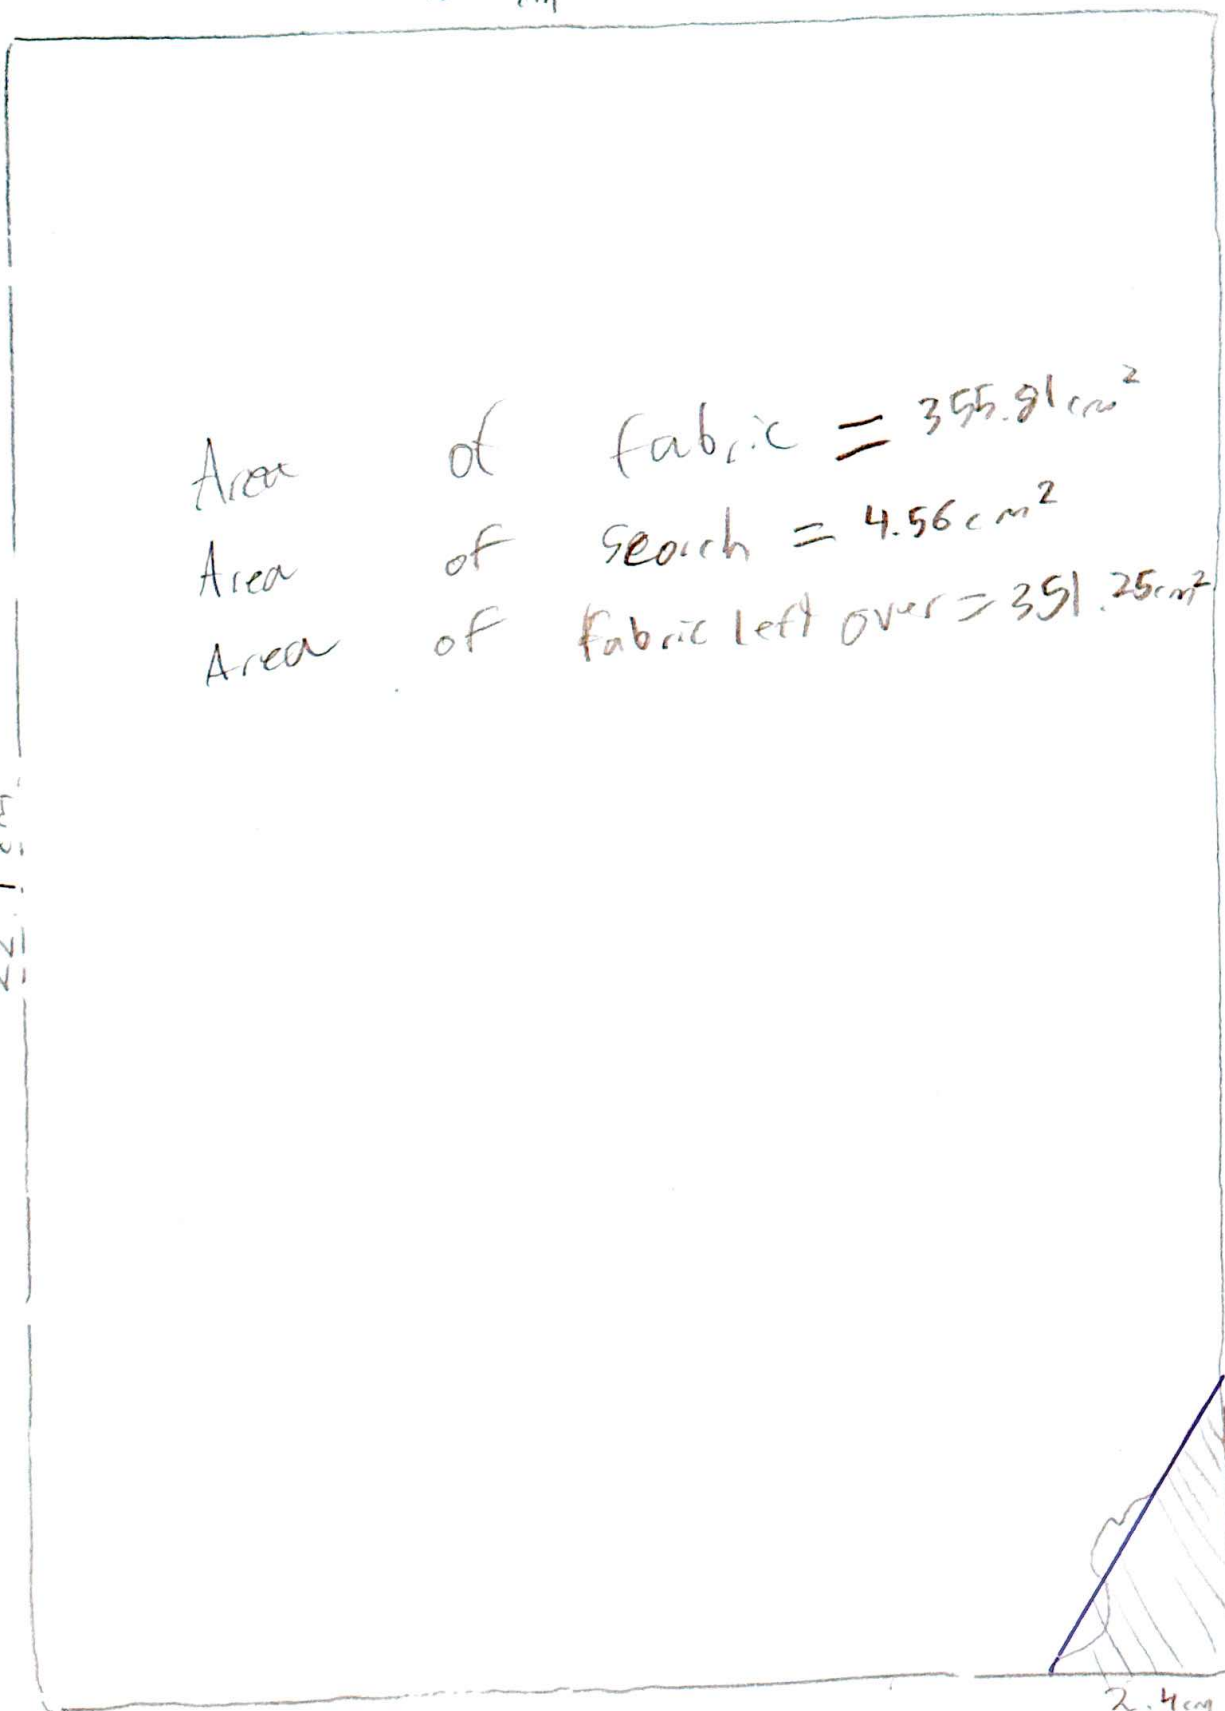 cm
Area of fabric = 355.81cm²
Area of scorch = 4.56cm²
Area of fabric left over = 351.25cm²
22.1cm
2.4cm